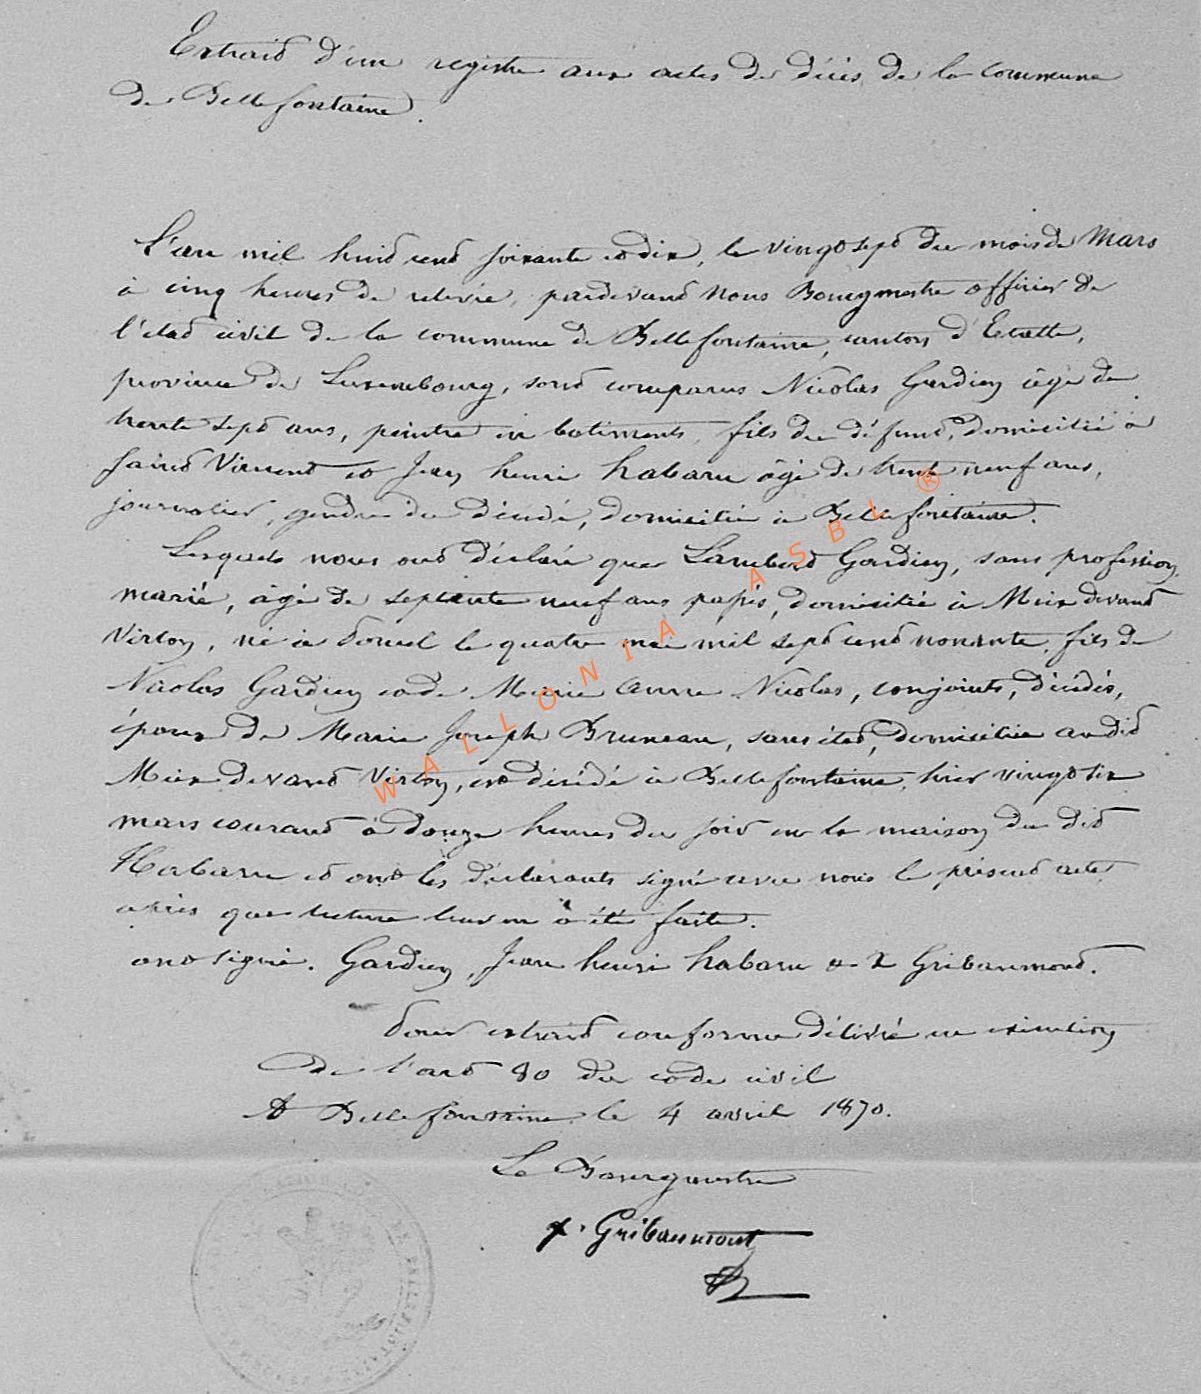 Extrait d'un registre aux actes de décès de la commune
de Bellefontaine.
L'an mil huit cent soixante et dix, le vingt sept du mois de Mars
à cinq heures de relevée, pardevant nous Bourgmestre officier de
l'état civil de la commune de Bellefontaine, canton d'Etalle,
province de Luxembourg, sont comparus Nicolas Gardien âgé de
trente sept ans, peintre en batiments, fils du défunt, domicilié à
Saint Vincent et Jean henri habaru âgé de trente neuf ans,
journalier, gendre du décédé, domicilié à Bellefontaine.
Lesquels nous ont déclaré que Lambert Gardien, sans profession,
marié, âgé de septante neuf ans passés, domicilié à Meix devant
Virton, né à le quatre mai mil sept cent nonante, fils de
Nicolas Gardien et de Marie Anne Nicolas, conjoints, décédés,
époux de Marie Joseph Bruneau, sans état, domiciliée audit
Meix devant Virton, est décédé à Bellefontaine, hier vingt six
mars courant à douze heures du soir en la maison du dit
Habaru et ont les déclarants signé avec nous le présent acte
après que lecture leur en a été faite.
ont signé. Gardien, Jean henri habaru et Gribaumont.
Pour extrait conforme délivré en exécution
de l'art 80 du code civil
A Bellefontaine le 4 avril 1870.
Le Bourgmestre
Gribaumont
WALLONIA ASBL ®